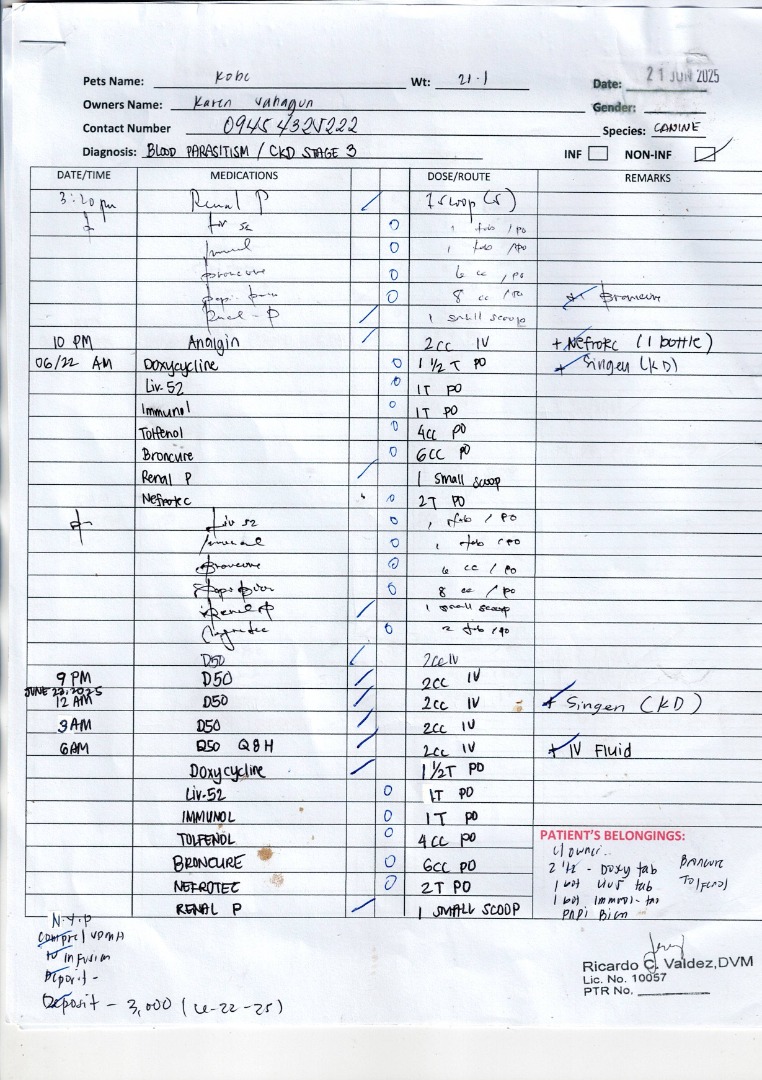 Pets Name: Kobe Wt: 21.1 Date: 21 JUN 2025
Owners Name: Karen Gender:
Contact Number Species: CANINE
Diagnosis: BLOOD PARASITISM / CKD STAGE 3 INF NON-INF
DATE/TIME MEDICATIONS DOSE/ROUTE REMARKS
3:20 pm Renal P 1 scoop
Liv 52 1 tab / po
1 tab / po
Broncure 6 cc / po
8 cc / po + Broncure
Renal - P 1 small scoop
10 PM Analgin 2cc IV + Nefrotec (1 bottle)
06/22 AM Doxycycline 1 1/2 T PO + Singen (KD)
Liv.52 1T PO
Immunol 1T PO
Tolfenol 4cc PO
Broncure 6CC PO
Renal P 1 small scoop
Nefrotec 2T PO
Liv 52 1 tab / PO
1 tab / PO
Broncure 6 cc / PO
8 cc / PO
Renal P 1 small scoop
2 tab / PO
D50 2cc IV
9 PM D50 2cc IV
12 AM D50 2cc IV + Singen (KD)
3AM D50 2cc IV
6AM D50 Q8H 2cc IV + IV Fluid
Doxycycline 1 1/2T PO
Liv-52 1T PO
IMMUNOL 1T PO
TOLFENOL 4CC PO
PATIENT'S BELONGINGS:
c/ owner
BRONCURE 6CC PO
2 1/2 - Doxy tab Broncure
NEFROTEC 2T PO
1 bot tab Tolfenol
1 bot Immunol - tab
RENAL P 1 SMALL SCOOP
N.Y.P
IV Infusion
Deposit -
Deposit - 3,000 (6-22-25)
Ricardo C. Valdez,DVM
Lic. No. 10057
PTR No.